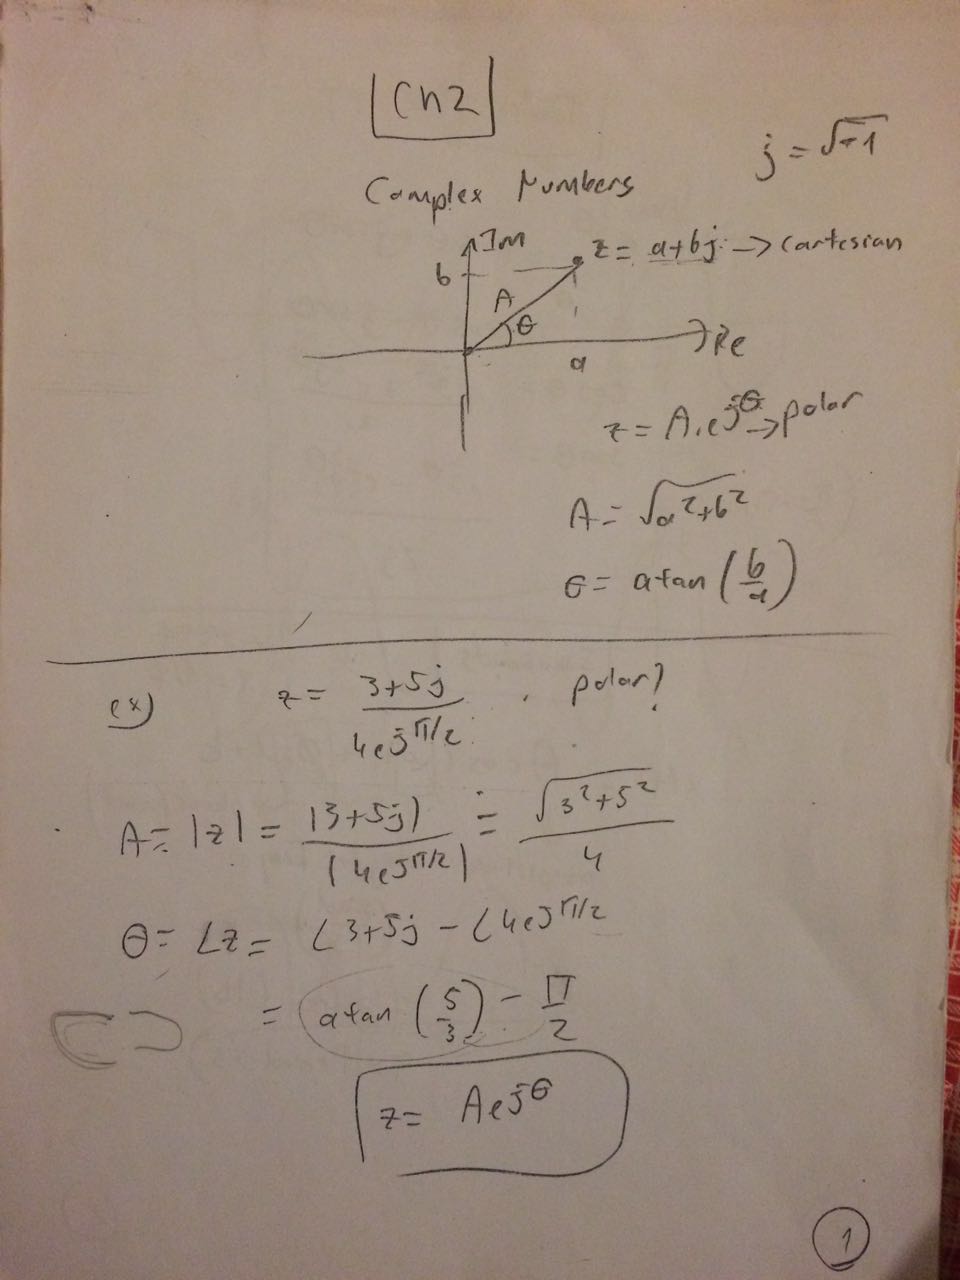 Ch2
j = √-1
Complex Numbers
Im
z = a+bj → cartesian
b
A
θ
Re
a
z = A.e^jθ → polar
A = √a²+b²
θ = atan (b/a)
ex) z = 3+5j / 4e^jπ/2 . polar?
A = |z| = |3+5j| / |4e^jπ/2| = √3²+5² / 4
θ = ∠z = ∠3+5j - ∠4e^jπ/2
= atan (5/3) - π/2
z = Ae^jθ
1